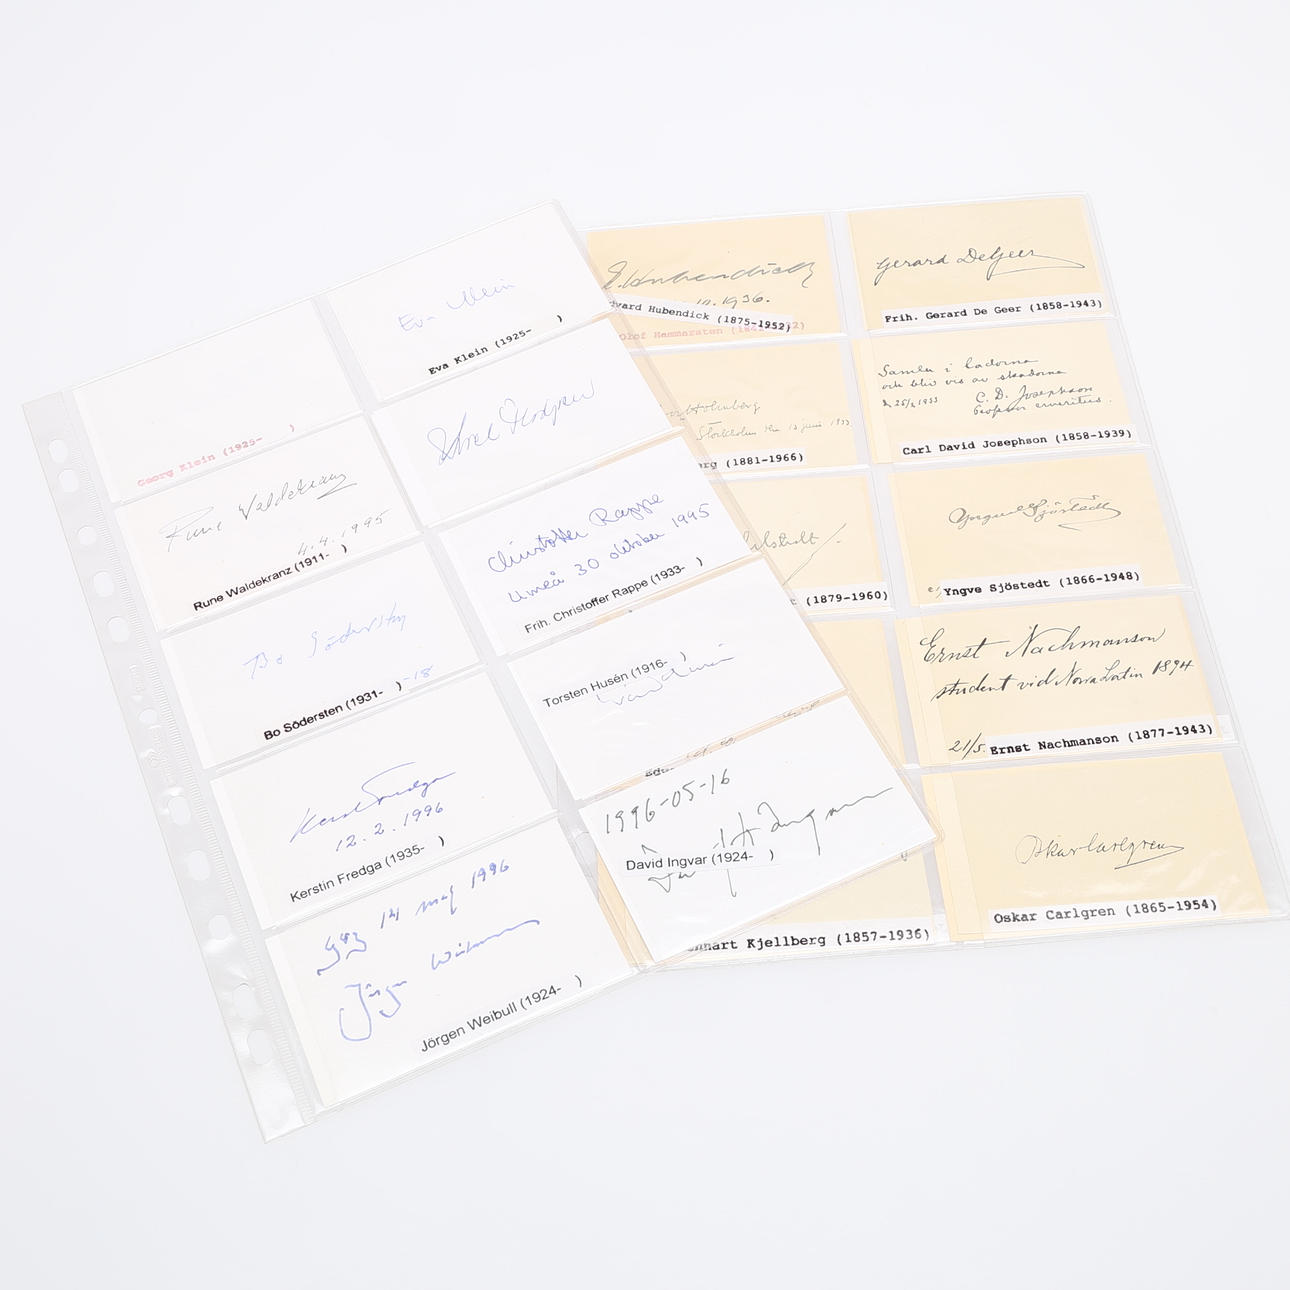 Eva Klein
Eva Klein (1925- )
Georg Klein (1925- )
Rune Waldekranz
4.4.1995
Rune Waldekranz (1911- )
Christoffer Rappe
Umeå 30 oktober 1995
Frih. Christoffer Rappe (1933- )
Bo Södersten
Bo Södersten (1931- )
Torsten Husén (1916- )
Kerstin Fredga
12.2.1996
Kerstin Fredga (1935- )
1996-05-16
David Ingvar (1924- )
14 maj 1996
Jörgen Weibull
Jörgen Weibull (1924- )
E. Hubendick
1936.
dvard Hubendick (1875-1952)
Olof Hammarsten
Gerard DeGeer
Frih. Gerard De Geer (1858-1943)
Holmberg
Stockholm den 13 juni 1933
erg (1881-1966)
Samlen i ladorna
och bliv vis av skadorna
25/2 1933 C. D. Josephson
Professor emeritus.
Carl David Josephson (1858-1939)
t (1879-1960)
Yngve Sjöstedt
Yngve Sjöstedt (1866-1948)
Ernst Nachmanson
student vid Norra Latin 1894
21/5.
Ernst Nachmanson (1877-1943)
nnart Kjellberg (1857-1936)
Oskar Carlgren
Oskar Carlgren (1865-1954)